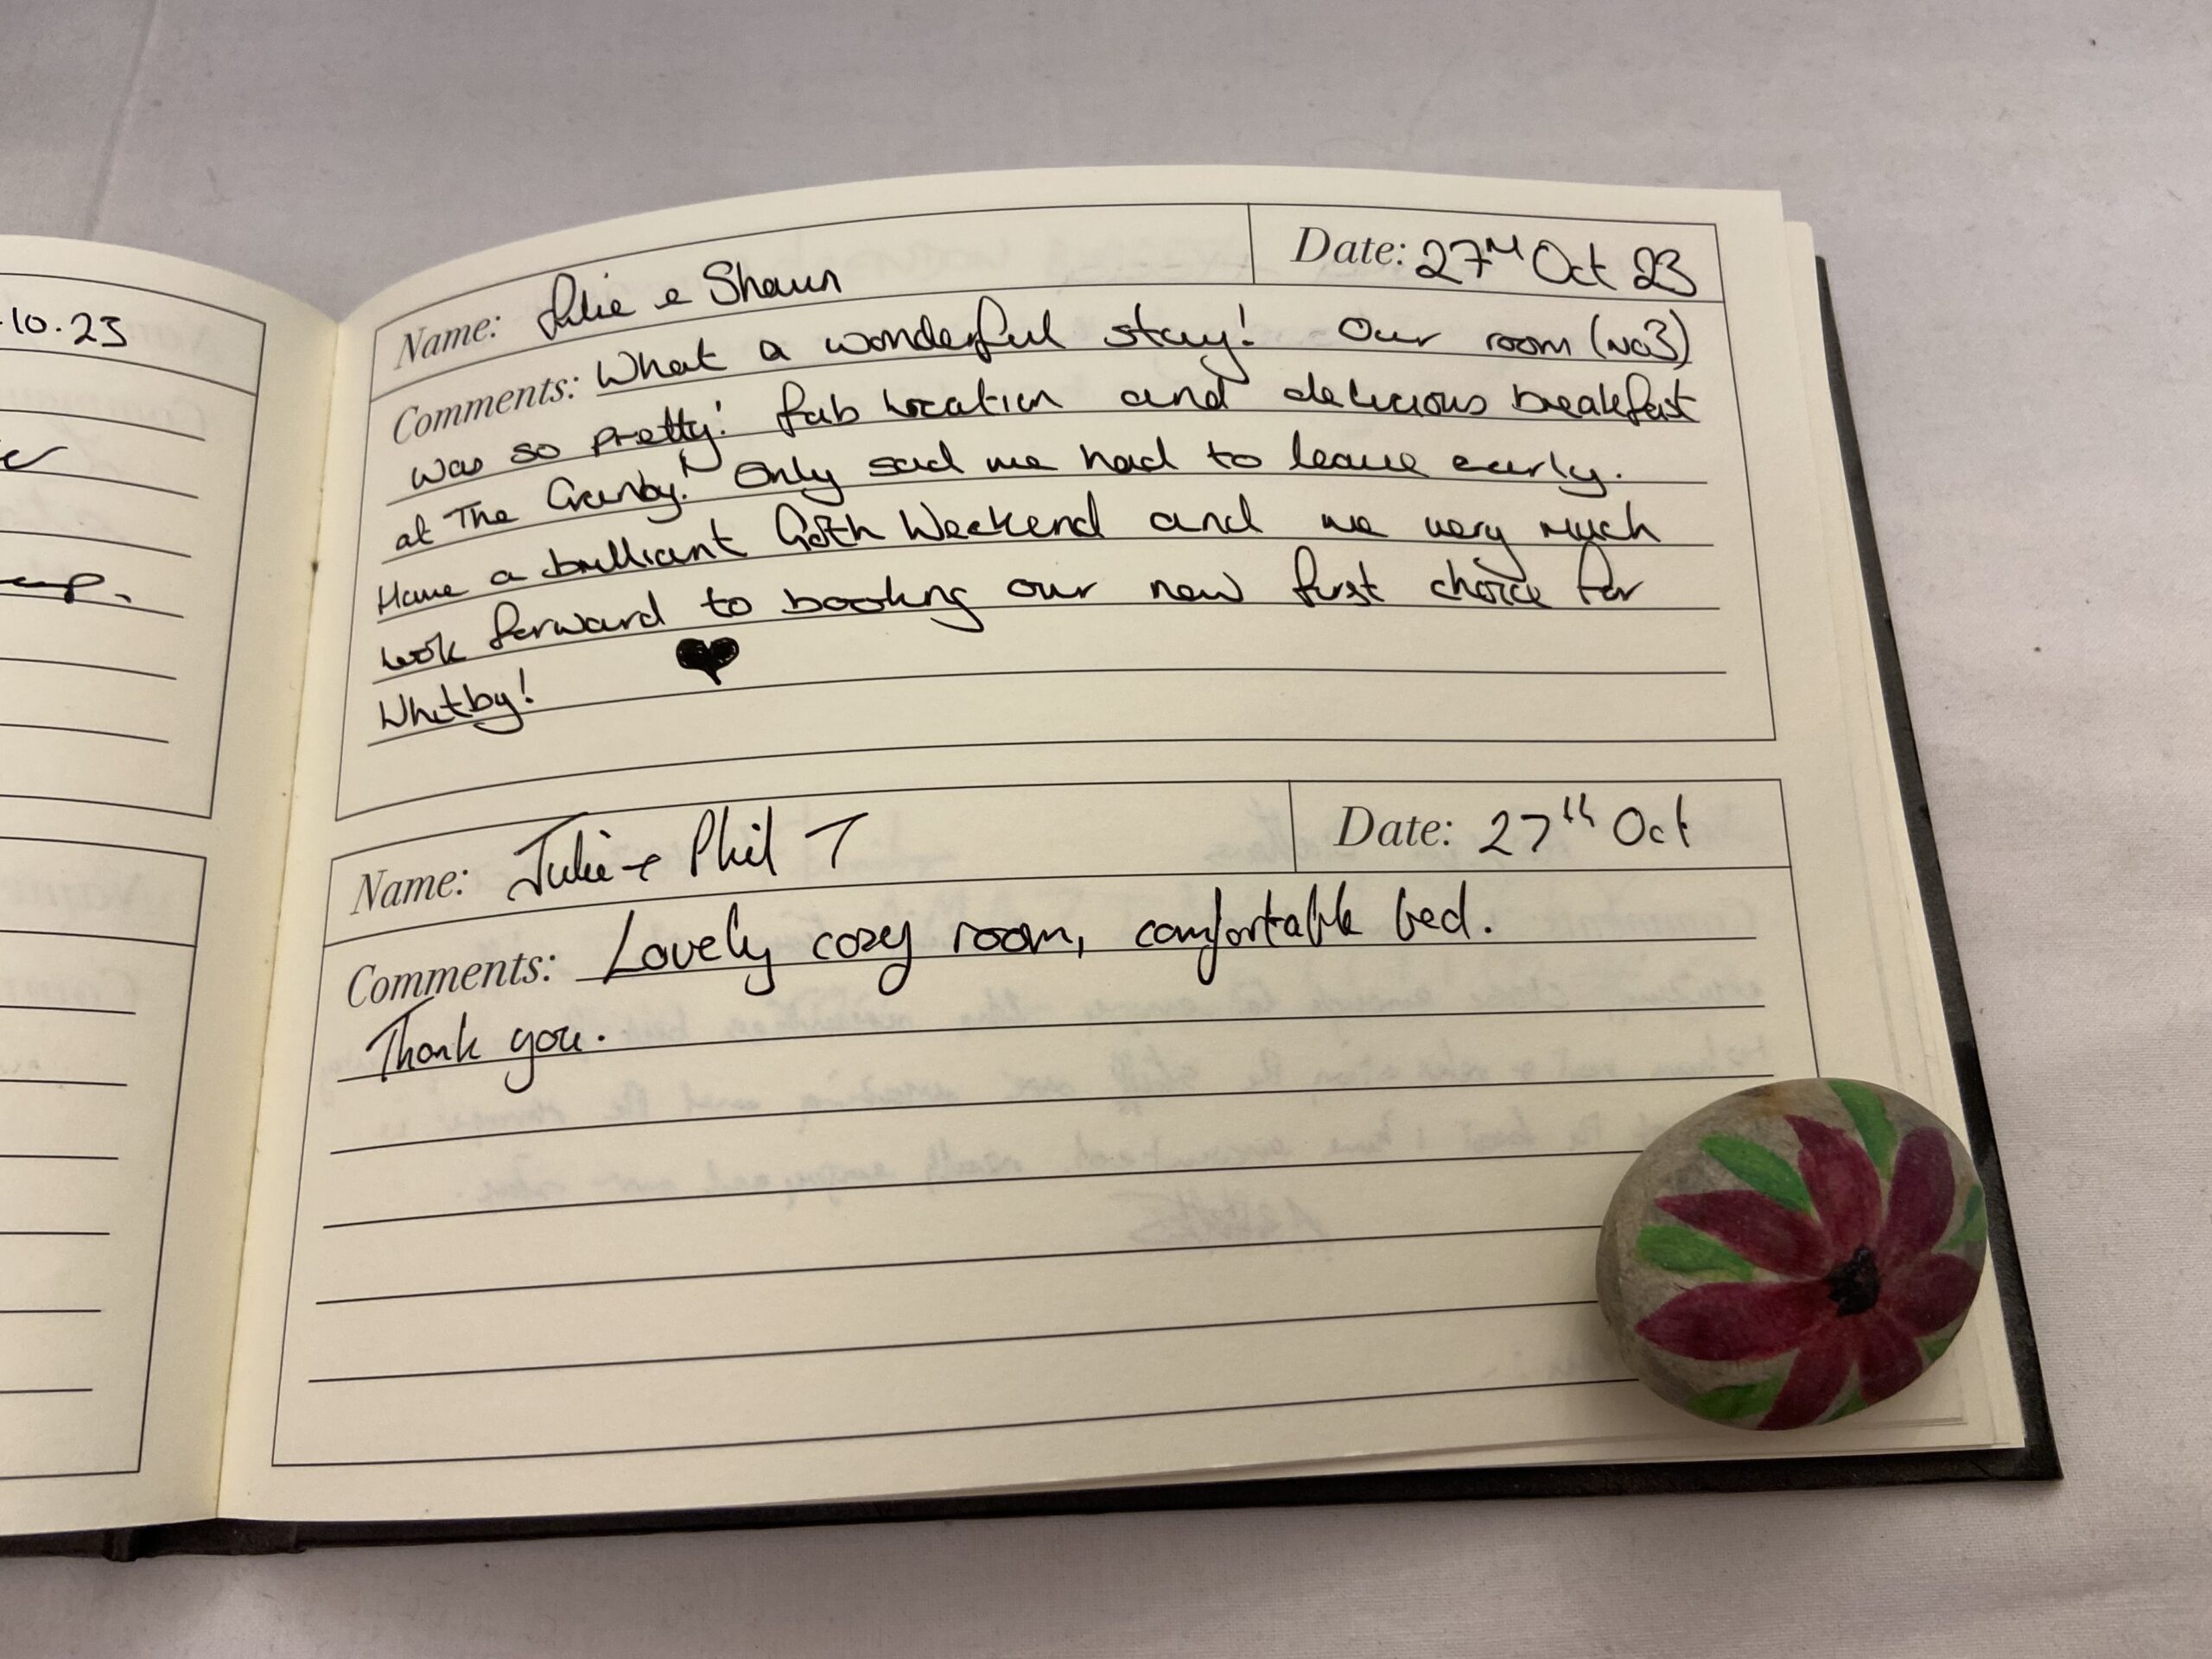 10.23
Name: Julie & Shaun
Date: 27th Oct 23
Comments: What a wonderful stay! Our room (No3)
was so pretty! Fab location and delicious breakfast
at The Granby! Only sad we had to leave early.
Have a brilliant Goth Weekend and we very much
look forward to booking our new first choice for
Whitby! ♥
Name: Julie + Phil T
Date: 27th Oct
Comments: Lovely cosy room, comfortable bed.
Thank you.